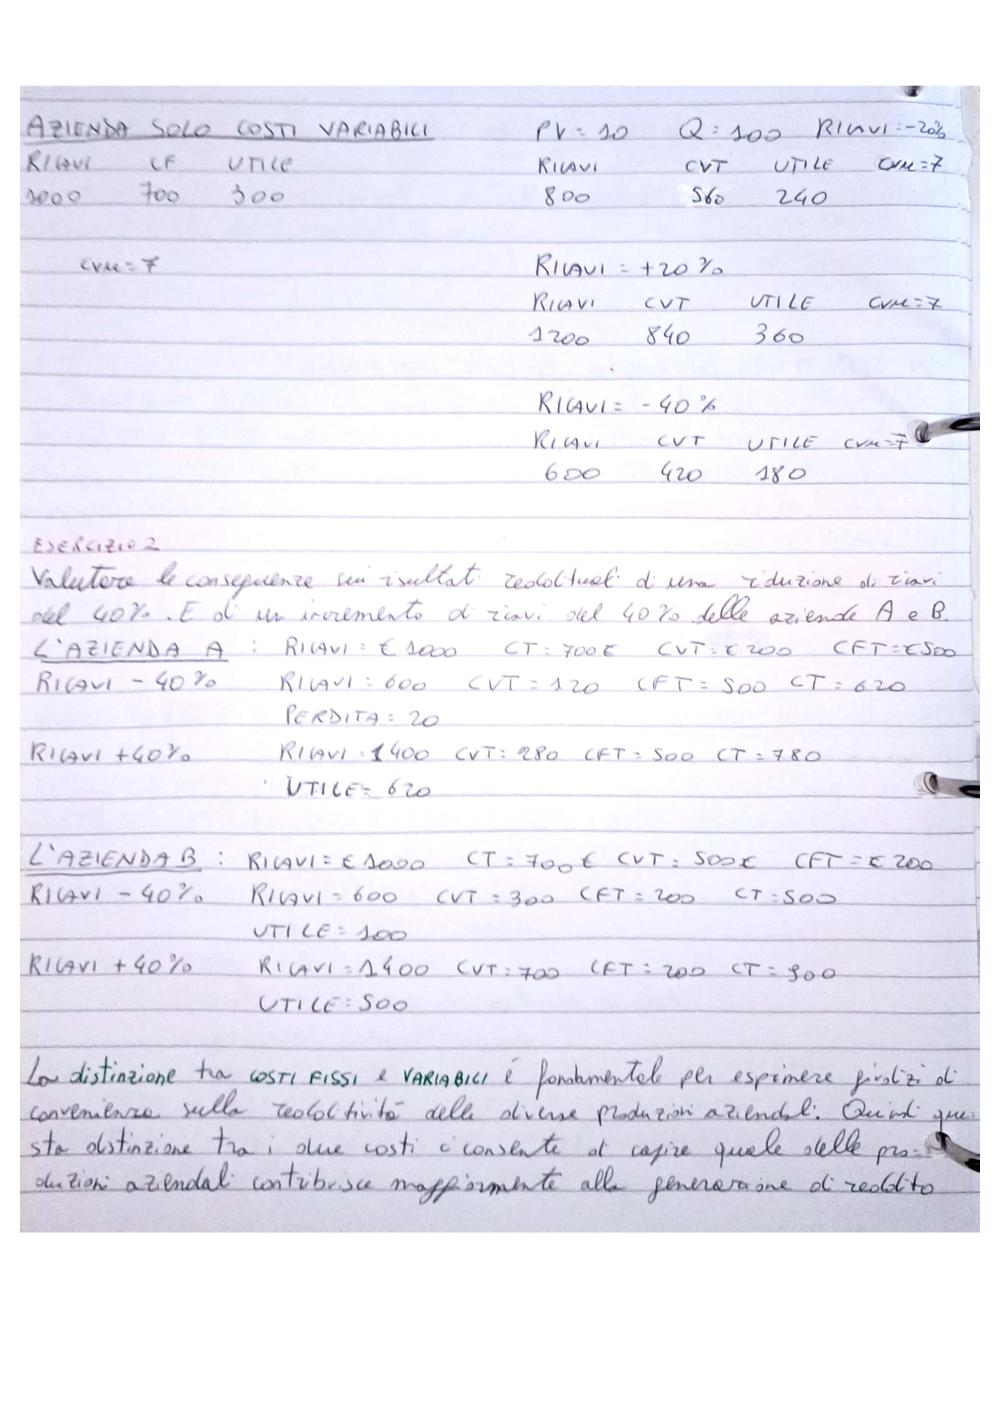 AZIENDA SOLO COSTI VARIABILI PV = 10 Q = 100 RICAVI = -20%
RICAVI CF UTILE RICAVI CVT UTILE CVM = 7
1000 700 300 800 560 240
CVM = 7 RICAVI = +20%
RICAVI CVT UTILE CVM = 7
1200 840 360
RICAVI = -40%
RICAVI CVT UTILE CVM = 7
600 420 180
ESERCIZIO 2
Valutare le conseguenze sui risultati reddituali di una riduzione di ricavi
del 40%. E di un incremento di ricavi del 40% delle aziende A e B.
L'AZIENDA A : RICAVI = € 1000 CT = 700 € CVT = € 200 CFT = € 500
RICAVI - 40% RICAVI = 600 CVT = 120 CFT = 500 CT = 620
PERDITA = 20
RICAVI +40% RICAVI = 1400 CVT = 280 CFT = 500 CT = 780
UTILE = 620
L'AZIENDA B : RICAVI = € 1000 CT = 700 € CVT = 500 € CFT = € 200
RICAVI - 40% RICAVI = 600 CVT = 300 CFT = 200 CT = 500
UTILE = 100
RICAVI + 40% RICAVI = 1400 CVT = 700 CFT = 200 CT = 900
UTILE = 500
La distinzione tra COSTI FISSI e VARIABILI è fondamentale per esprimere giudizi di
convenienza sulla redditività delle diverse produzioni aziendali. Quindi que-
sta distinzione tra i due costi ci consente di capire quale delle pro-
duzioni aziendali contribuisce maggiormente alla generazione di reddito